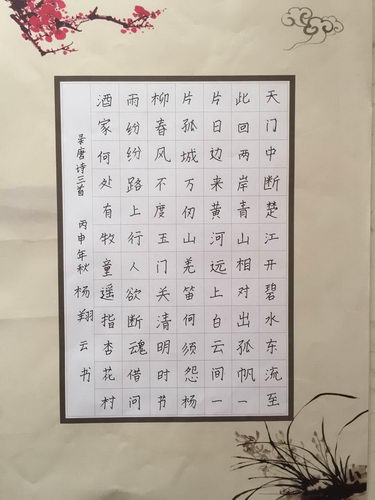 天门中断楚江开碧水东流至
此回两岸青山相对出孤帆一
片日边来黄河远上白云间一
片孤城万仞山羌笛何须怨杨
柳春风不度玉门关清明时节
雨纷纷路上行人欲断魂借问
酒家何处有牧童遥指杏花村
录唐诗三首 丙申年秋杨翔云书